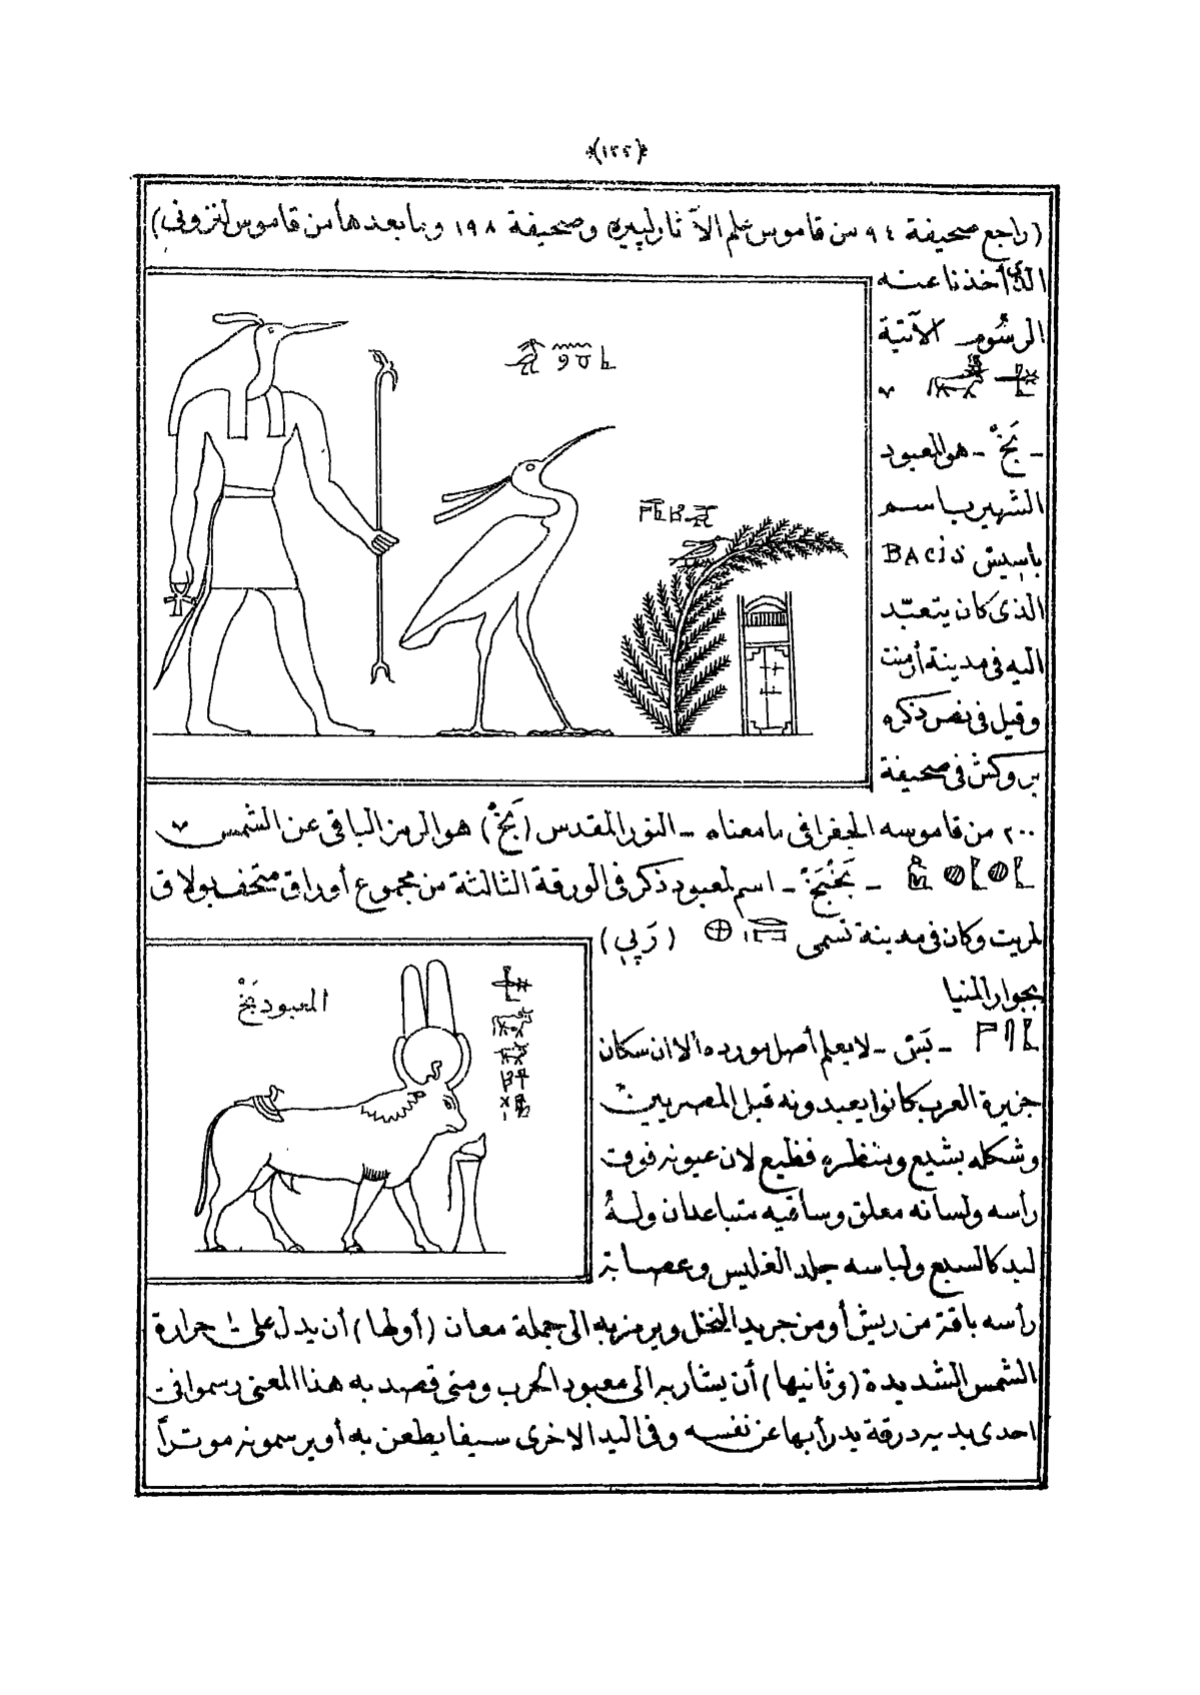 (١٢٢)
(راجع صحيفة ٩٤ من قاموس علم الآثار لپيره وصحيفة ١٩٨ وما بعدها من قاموس لنزوني)
الذى أخذنا عنه
الرسوم الآتية
ـ بَخْ ـ هو المعبود
الشهير باسم
باسيس BACiS
الذى كان يتعبّد
اليه فى مدينة أرمنت
وقيل فى نص ذكره
بروكش فى صحيفة
٢٠٠ من قاموسه الجغرافى ما معناه ـ النور المقدس (بَخْ) هو الرمز الباقى عن الشمس
ـ بَخْبَخْ ـ اسم لمعبود ذكر فى الورقة الثالثة من مجموع أوراق متحف بولاق
لمريت وكان فى مدينة تسمى (رَپِى)
بجوار المنيا
ـ بَس ـ لا يعلم أصل مورده الا ان سكان
جزيرة العرب كانوا يعبدونه قبل المصريين
وشكله بشيع ومنظره فظيع لان عيونه فوق
رأسه ولسانه معلق وساقيه متباعدان وله
لبد كالسبع ولباسه جلد الغليس وعصابة
رأسه باقة من ريش أو من جريد النخل ويرمز به الى جملة معان (أولها) أن يدل على حرارة
الشمس الشديدة (وثانيها) أن يشار به الى معبود الحرب ومتى قصد به هذا المعنى رسموا فى
احدى يديه درقة يدرأ بها عن نفسه وفى اليد الاخرى سيفا يطعن به أو يرسمونه موتراً
المعبود بَخْ